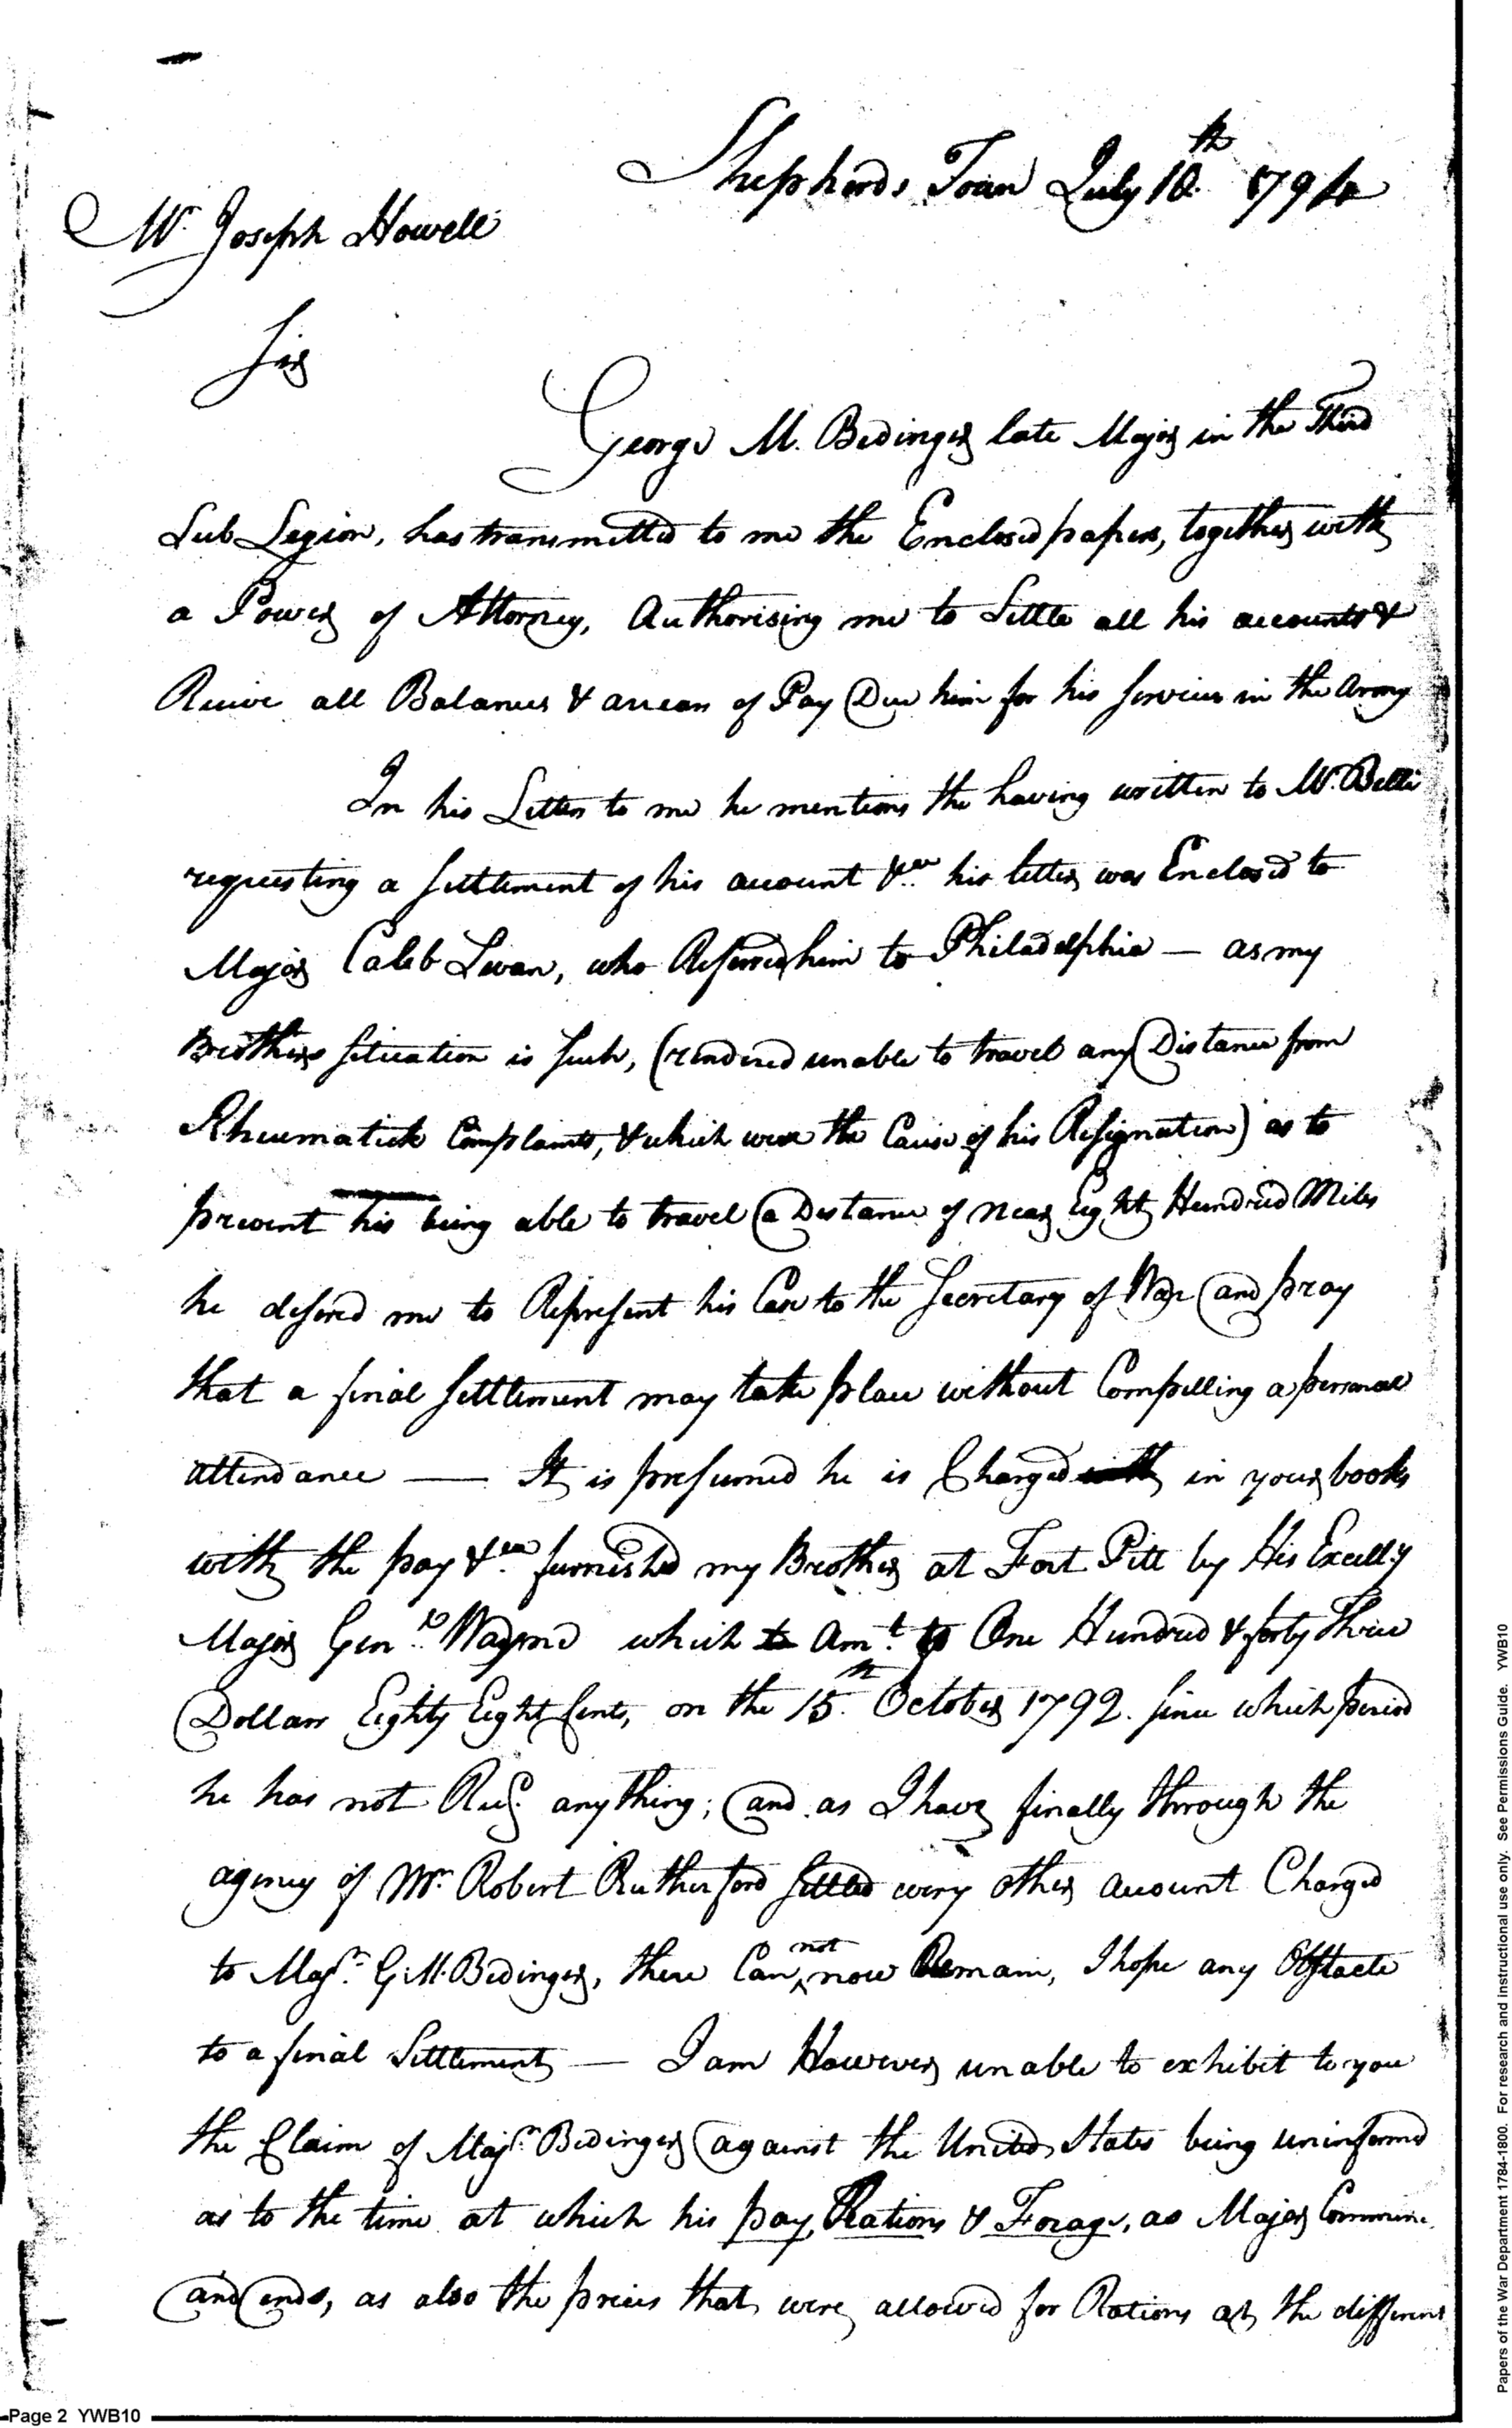 Shepherds Town July 10th 1794
Mr. Joseph Howell
Sir
George M. Bedinger late Major in the Third
Sub Legion, has transmitted to me the Enclosed papers, together with
a Power of Attorney, Authorising me to Settle all his accounts &
Receive all Balances & arrears of Pay Due him for his Services in the Army
In his Letter to me he mentions the having written to Mr. Belli
requesting a Settlement of his account &ca. his letter was Enclosed to
Major Caleb Swan, who Referred him to Philadelphia — as my
Brothers Situation is Such, (rendered unable to travel any Distance from
Rheumatick Complaints, & which were the Cause of his Resignation) as to
prevent his being able to travel a Distance of near Eight Hundred Miles
he desired me to Represent his Case to the Secretary of War and pray
that a final Settlement may take place without Compelling a personal
attendance — It is presumed he is Charged with in your books
with the pay &ca. furnished my Brother at Fort Pitt by His Excelly
Major Genl. Wayne which to Amt. to One Hundred & forty Three
Dollars Eighty Eight Cents, on the 15th. October 1792. since which period
he has not Recd. any thing; and as I have finally through the
agency of Mr. Robert Rutherford Settled every other account Charged
to Majr. G. M. Bedinger, there Can not now Remain, I hope any Obstacle
to a final Settlement — I am However unable to exhibit to you
the Claim of Majr. Bedinger against the United States being uninformed
as to the time at which his pay, Rations & Forage, as Major Commence
and ends, as also the prices that were allowed for Rations at the different
Page 2 YWB10
Papers of the War Department 1784-1800. For research and instructional use only. See Permissions Guide. YWB10